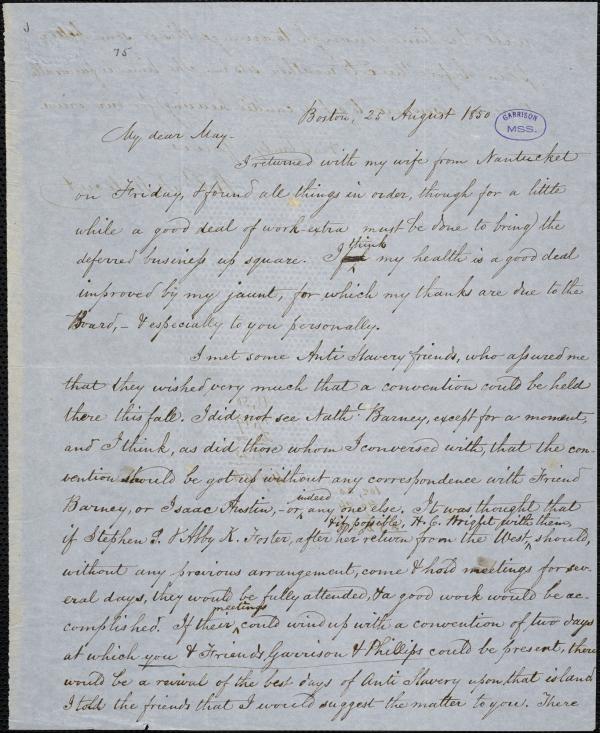 75
Boston, 25 August 1850
GARRISON
MSS.
My dear May-
I returned with my wife from Nantucket
on Friday, & found all things in order, though for a little
while a good deal of work extra must be done to bring the
deferred business up square. I think my health is a good deal
improved by my jaunt, for which my thanks are due to the
Board, - & especially to you personally.
I met some Anti Slavery friends, who assured me
that they wished very much that a convention could be held
there this fall. I did not see Nathl. Barney, except for a moment,
and I think, as did those whom I conversed with, that the con-
vention should be got up without any correspondence with Friend
Barney, or Isaac Austin, - or indeed any one else. It was thought that
if Stephen S. & Abby K. Foster, after her return from the West, & if possible, H. C. Wright with them, should,
without any previous arrangement, come & hold meetings for sev-
eral days, they would be fully attended, & a good work would be ac-
complished. If their meetings could wind up with a convention of two days
at which you & Friends Garrison & Phillips could be present, there
would be a revival of the best days of Anti Slavery upon that island
I told the friends that I would suggest the matter to you. There